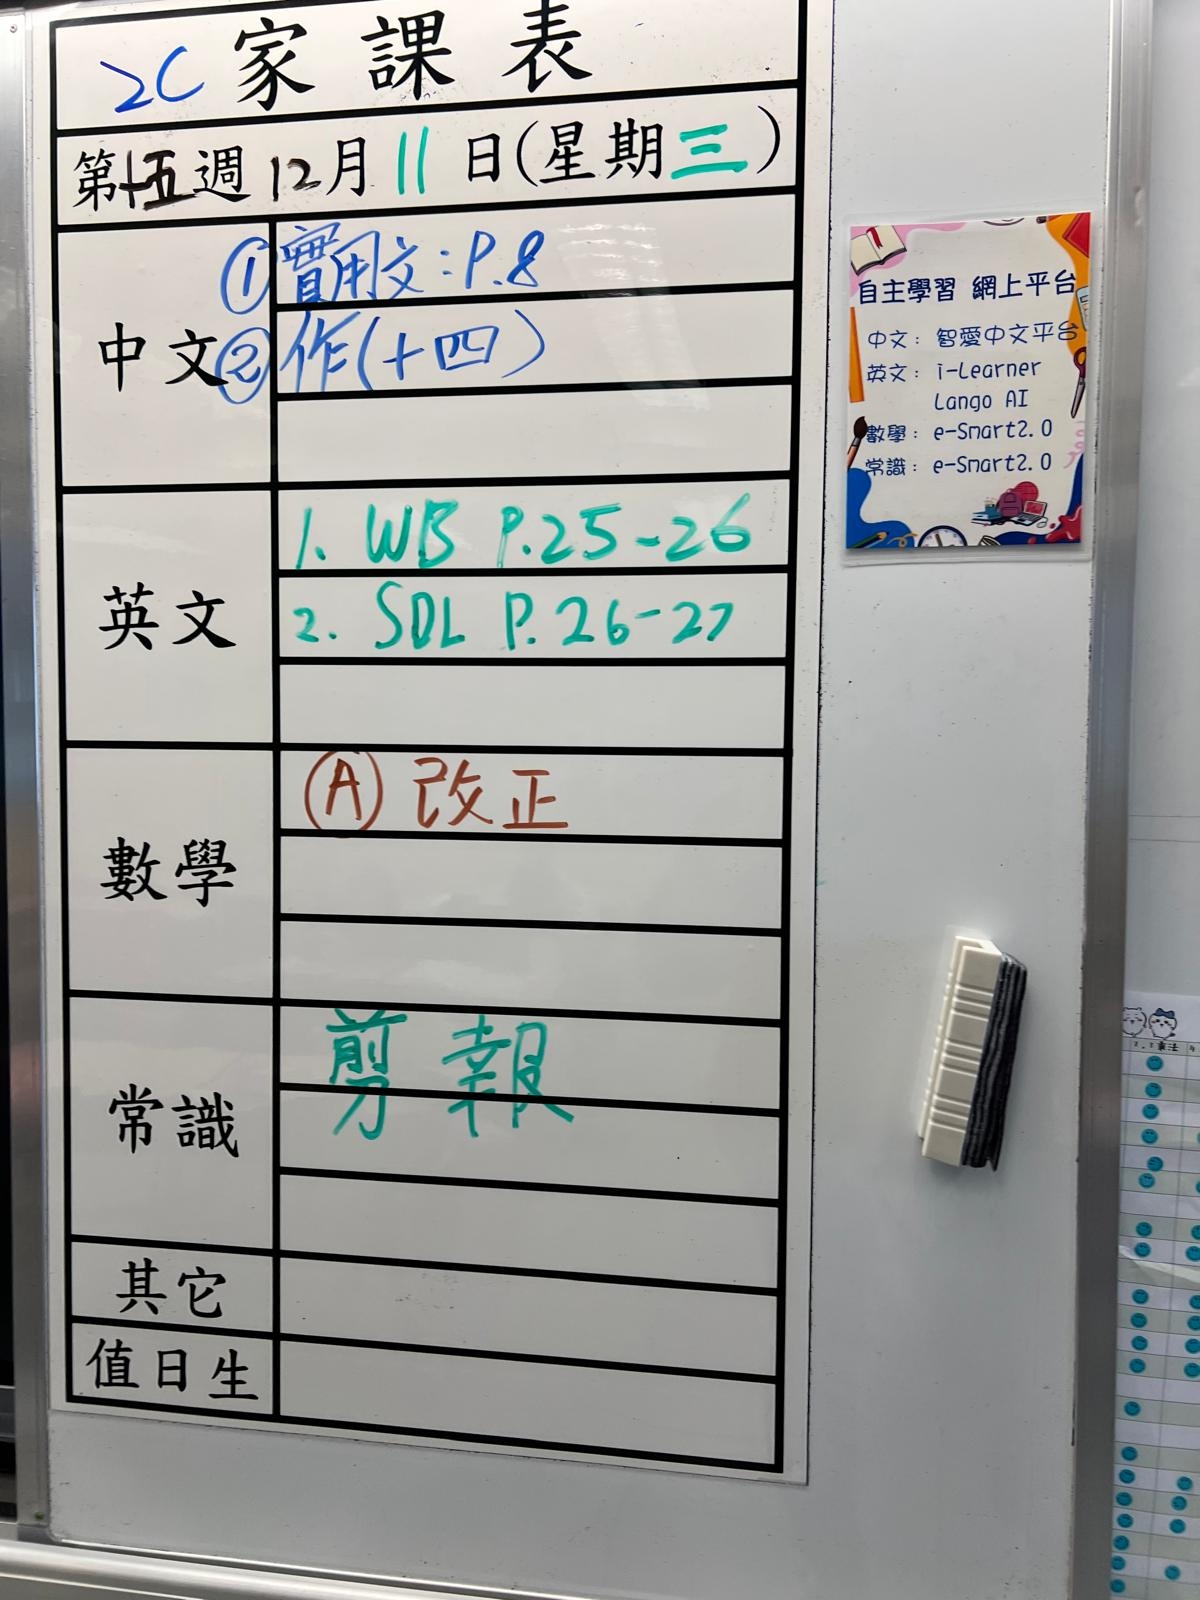 2C 家課表
第十五週 12月 11 日(星期三)
中文
① 實用文:P.8
② 作(十四)
英文
1. WB P.25-26
2. SDL P.26-27
數學
Ⓐ 改正
常識
剪報
其它
值日生
自主學習 網上平台
中文: 智愛中文平台
英文: i-Learner
Lango AI
數學: e-Smart2.0
常識: e-Smart2.0